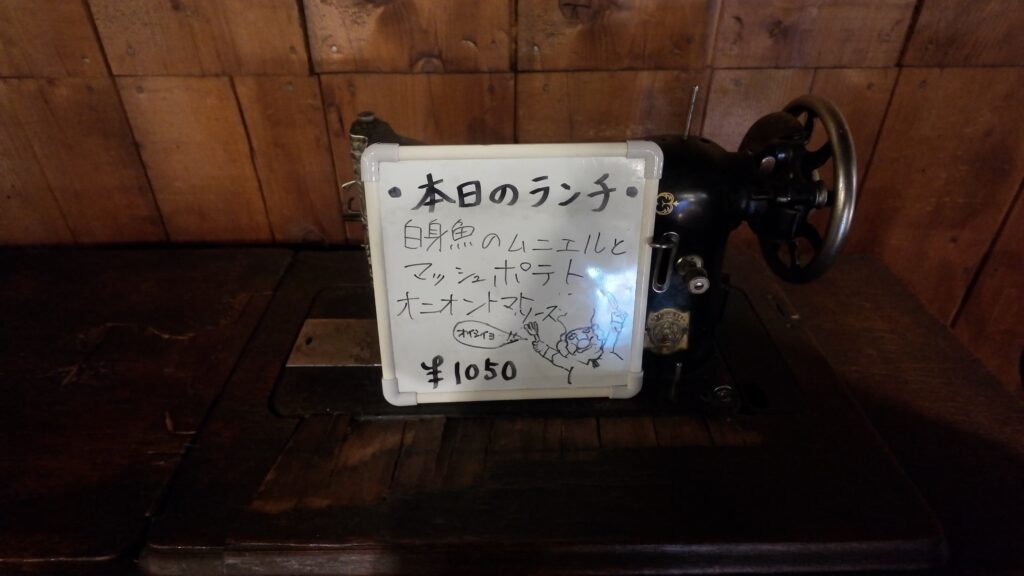 ・本日のランチ・
白身魚のムニエルと
マッシュポテト
オニオントマトソース
オイシイヨ
¥1050